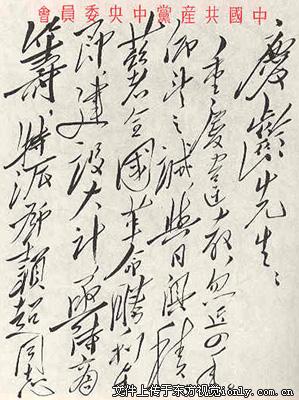 中國共產黨中央委員會
慶齡先生：
重慶違教，忽近四年，
仰望之誠，與日俱積。
茲者全國革命勝利在
即，建設大計，亟待商
籌，特派鄧穎超同志
文件上传于东方视觉ionly.com.cn